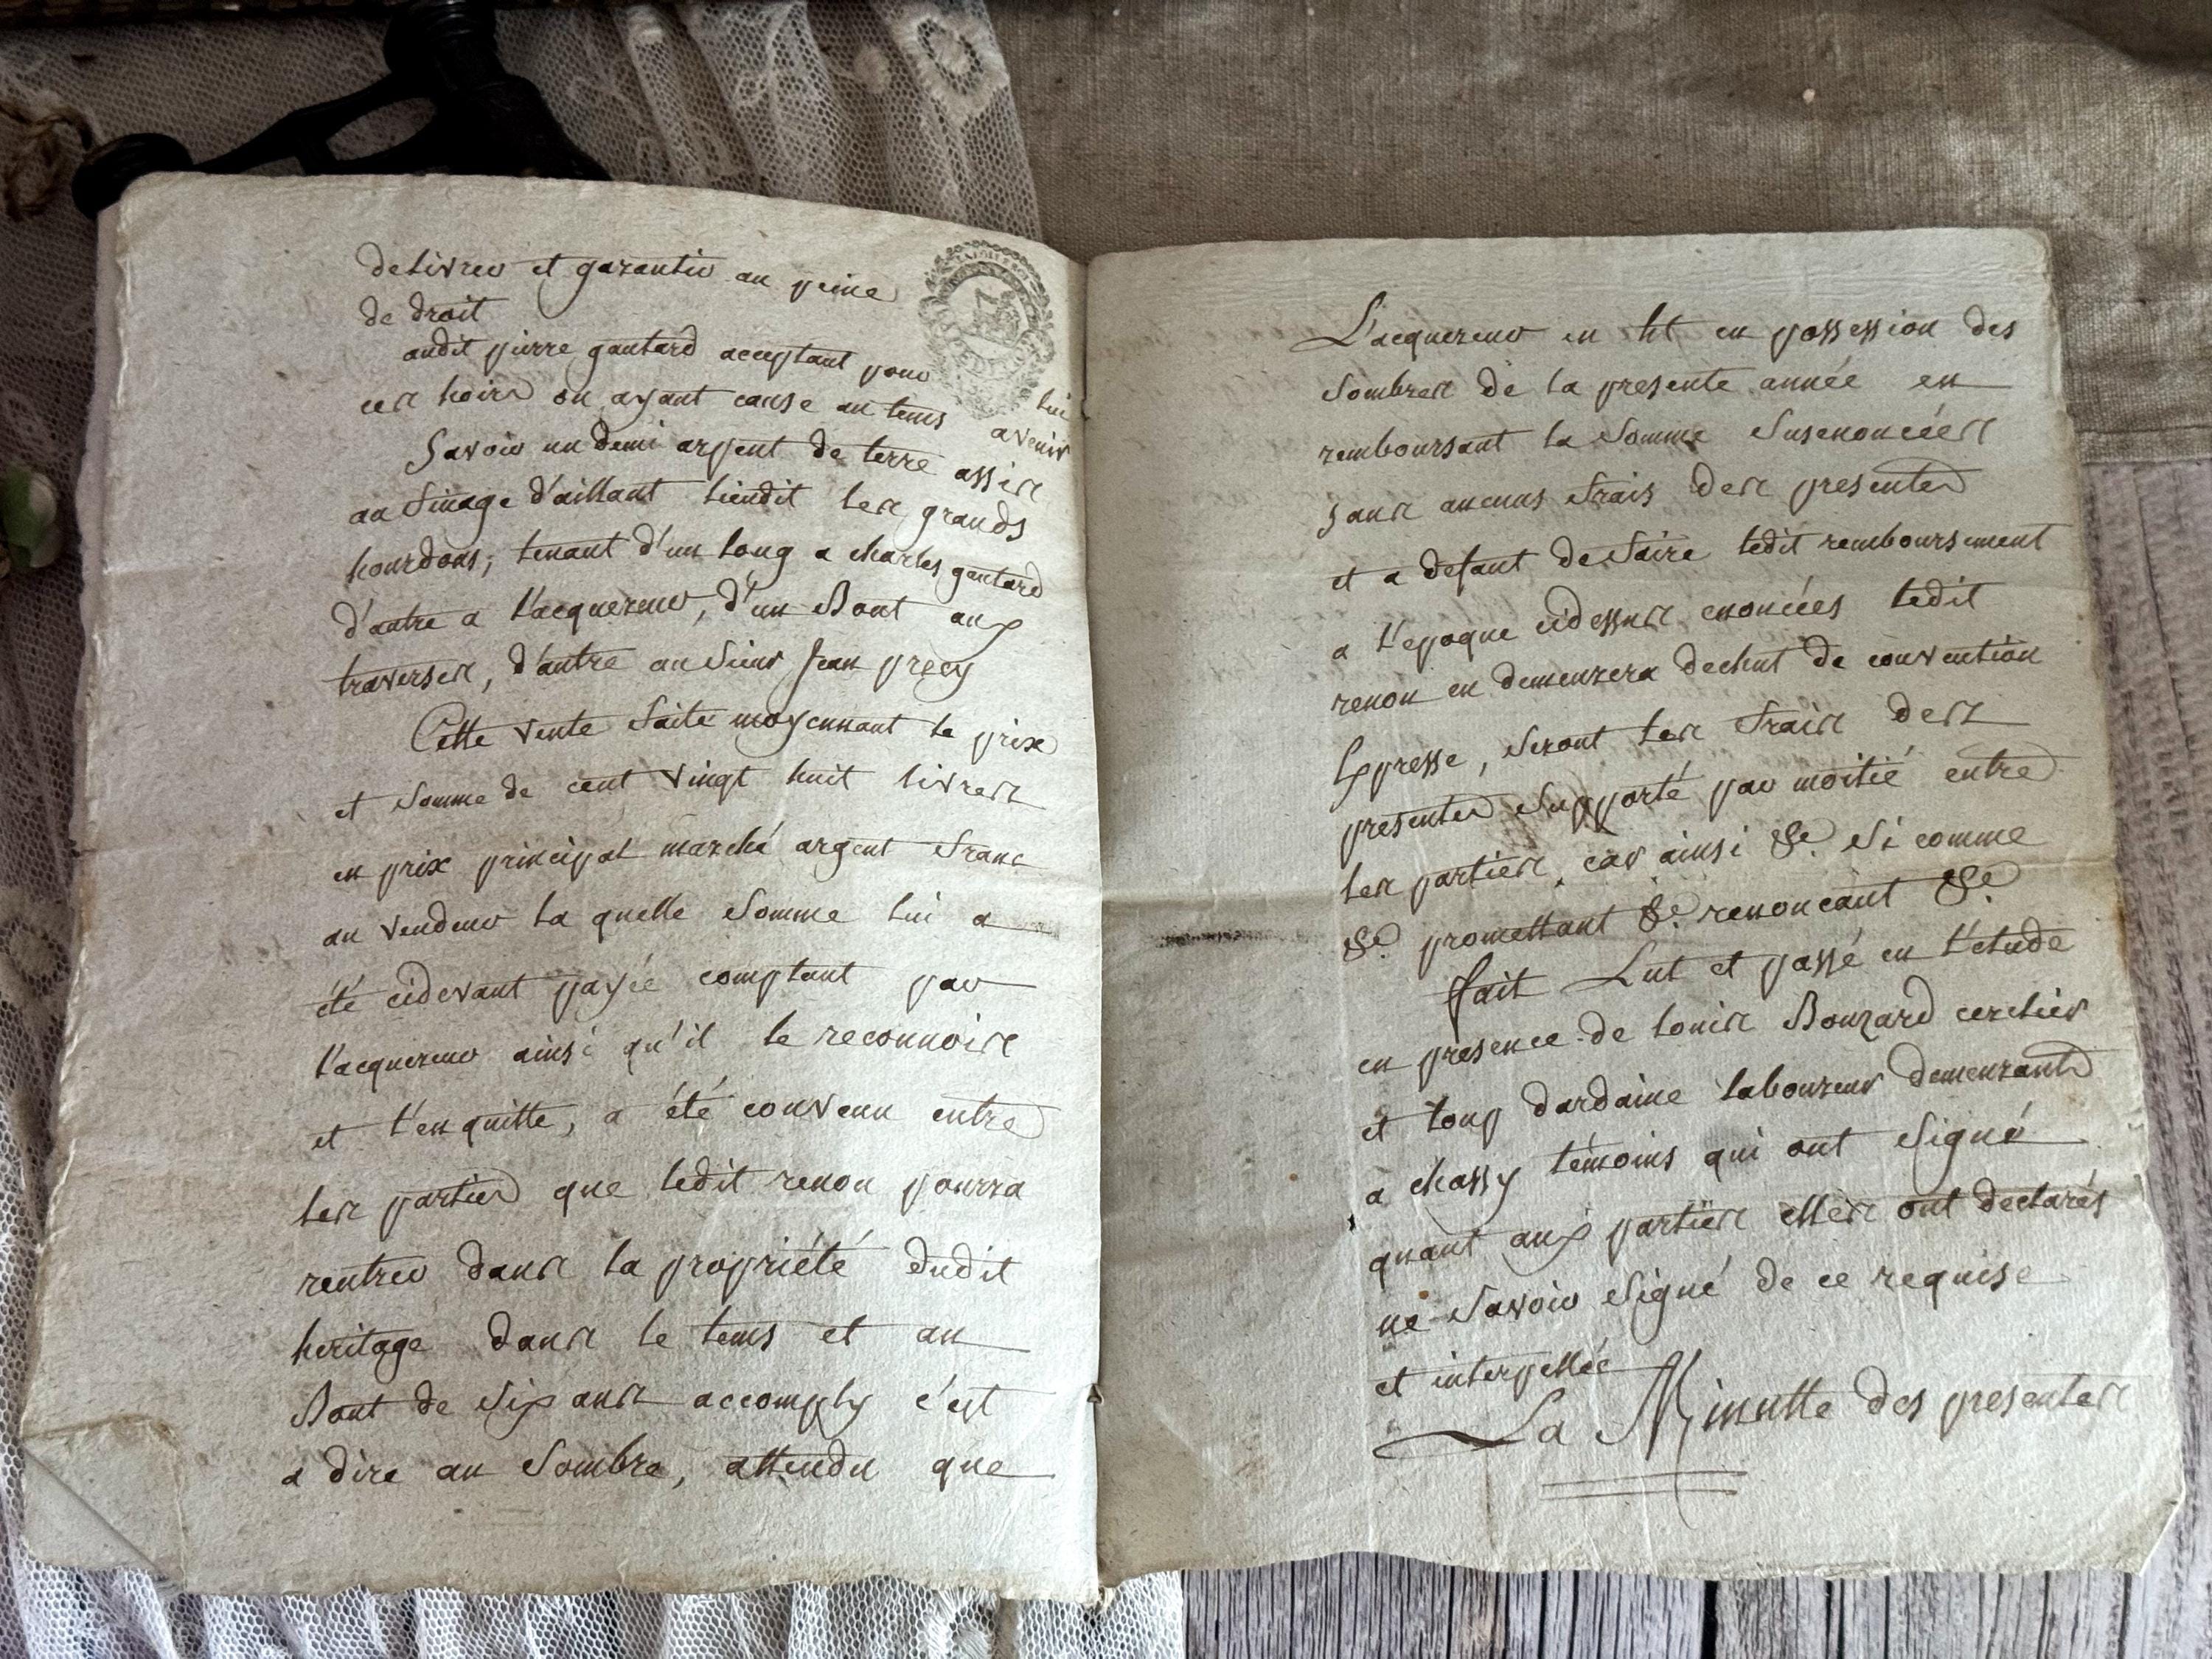 delivrer et garantir au peine
de droit
audit pierre gautard acceptant pour lui
ces hoirs ou ayant cause au tems avenir
Savoir un demi arpent de terre assis
au finage d'aillant lieudit les grands
hourdons; tenant d'un long a charles gautard
d'autre a l'acquereur, d'un Bout aux
traverses, d'autre au sieur Jean precy
Cette vente faite moyennant le prix
et somme de cent vingt huit livres
en prix principal marché argent franc
au vendeur la quelle somme lui a
été cidevant payée comptant par
l'acquereur ainsi qu'il le reconnois
et l'en quitte, a été convenu entre
les parties que ledit renou pourra
rentrer dans la propriété dudit
heritage dans le tems et au
Bout de six ans accomply c'est
a dire au sombre, attendu que
L'acquereur en ht en possession des
sombres de la presente année en
remboursant la somme susenoncées
sans aucuns frais des presentes
et a defaut de faire ledit remboursement
a l'epoque cidessus enoncées ledit
renou en demeurera dechut de convention
Expresse, seront les frais des
presentes supporté par moitié entre
les parties, car ainsi &c. si comme
&c. promettant &c. renonçant &c.
fait Lut et passé en l'etude
en presence de louis Bouzard cerclier
et loup dardaine laboureur demeurants
a chassy témoins qui ont signé
quant aux parties elles ont declarés
ne savoir signé de ce requise
et interpellée
La Minutte des presentes